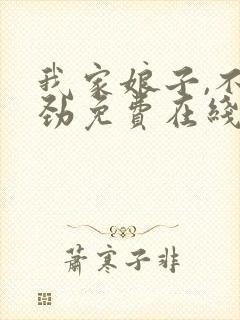 我家娘子,不
劲免费在线
萧寒子非